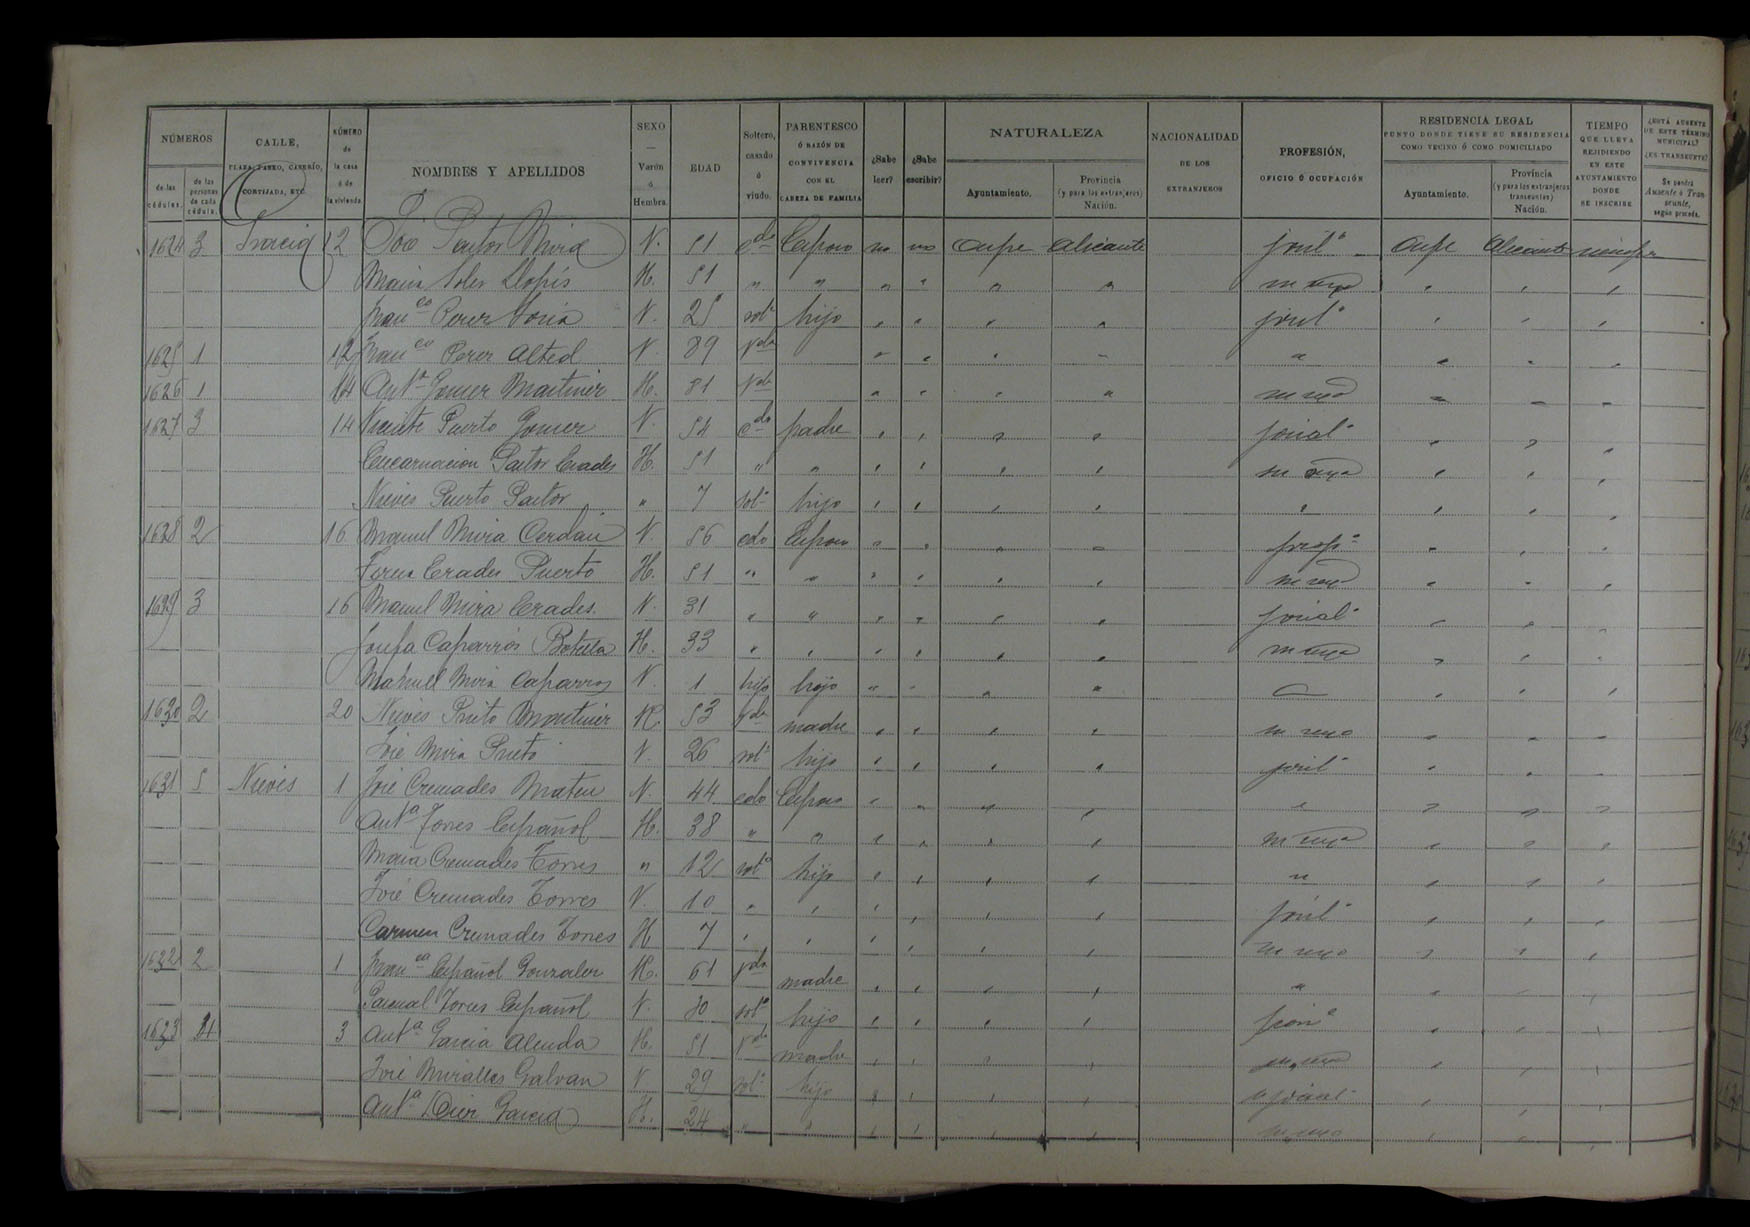 NÚMEROS
de las cédulas.
de las personas de cada cédula.
CALLE,
PLAZA, PASEO, CASERÍO, CORTIJADA, ETC.
NÚMERO de la casa ó de la vivienda.
NOMBRES Y APELLIDOS
SEXO — Varón ó Hembra.
EDAD
Soltero, casado ó viudo.
PARENTESCO Ó RAZÓN DE CONVIVENCIA CON EL CABEZA DE FAMILIA
¿Sabe leer?
¿Sabe escribir?
NATURALEZA
Ayuntamiento.
Provincia (y para los extranjeros) Nación.
NACIONALIDAD DE LOS EXTRANJEROS
PROFESIÓN, OFICIO Ó OCUPACIÓN
RESIDENCIA LEGAL
PUNTO DONDE TIENE SU RESIDENCIA COMO VECINO Ó COMO DOMICILIADO
Ayuntamiento.
Provincia (y para los extranjeros transeuntes) Nación.
TIEMPO QUE LLEVA RESIDIENDO EN ESTE AYUNTAMIENTO DONDE SE INSCRIBE
¿ESTÁ AUSENTE DE ESTE TÉRMINO MUNICIPAL? ¿ES TRANSEUNTE?
Se pondrá Ausente ó Transeunte, según proceda.
1624 3 12 José Pastor Mira V. 51 cdo Esposo no no Aspe Alicante jornl° Aspe Alicante
Maria Soler Llopis H. 51 " " " " " " " " "
Franco Perez Soria V. 25 solo hijo " " " " jornl° " " "
1625 1 12 Franco Perez Alted V. 89 Vdo " " " " " " " "
1626 1 14 Anta Gomez Martinez H. 81 Vda " " " " " " "
1627 3 14 Vicente Puerto Gomez V. 54 cdo padre " " " " jornal° " " "
Encarnacion Pastor Erades H. 51 " " " " " " " " "
Nieves Puerto Pastor " 7 sola hijo " " " " " " " "
1628 2 16 Manuel Mira Cerdan V. 56 cdo Esposo " " " " prop° " " "
Teresa Erades Puerto H. 51 " " " " " " " " "
1629 3 16 Manuel Mira Erades. V. 31 " " " " " " jornal° " " "
Josefa Caparrós Botella H. 33 " " " " " " " " "
Manuel Mira Caparros V. 1 hijo hijo " " " " " " "
1630 2 20 Nieves Prieto Martinez H. 53 Vda madre " " " " " " "
José Mira Prieto V. 26 solo hijo " " " " jornl° " " "
1631 5 Nieves 1 José Cremades Mateu V. 44 cdo Esposo " " " " " " " "
Anta Torres Español H. 38 " " " " " " " " "
Maria Cremades Torres " 12 sola hijo " " " " " " " "
José Cremades Torres V. 10 " " " " " " jornl° " " "
Carmen Cremades Torres H 7 " " " " " " " " "
1632 2 1 Franca Español Gonzalez H. 61 Vda madre " " " " " " " "
Pascual Torres Español V. 30 solo hijo " " " " " " "
1633 3 Anta Garcia Alenda H. 51 Vda madre " " " " " " "
José Miralles Galvan V 29 solo hijo " " " " jornal° " " "
Anta Garcia H. 24 " " " " " " " " "